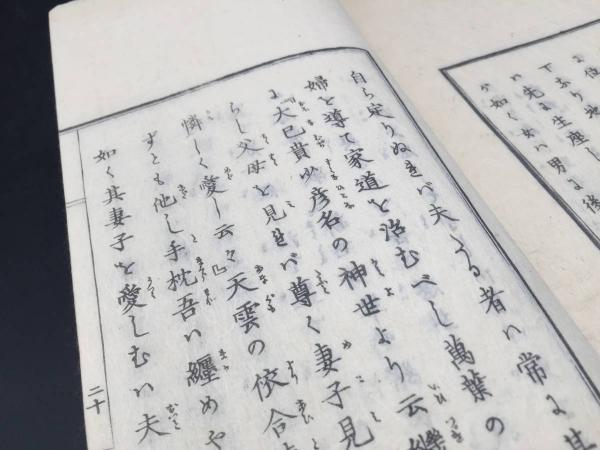 ハ先に生座し
如く女ハ男に後
自ら定りぬれバ夫たる者ハ常に其
婦を導て家道を治むべし萬葉の
『大已貴少彦名の神世より云継
らし父母を見れバ尊く妻子見
憐しく愛し云々』天雲の依合
ずとも他し手枕吾ハ纏めや
如く其妻子を愛しむハ夫
二十